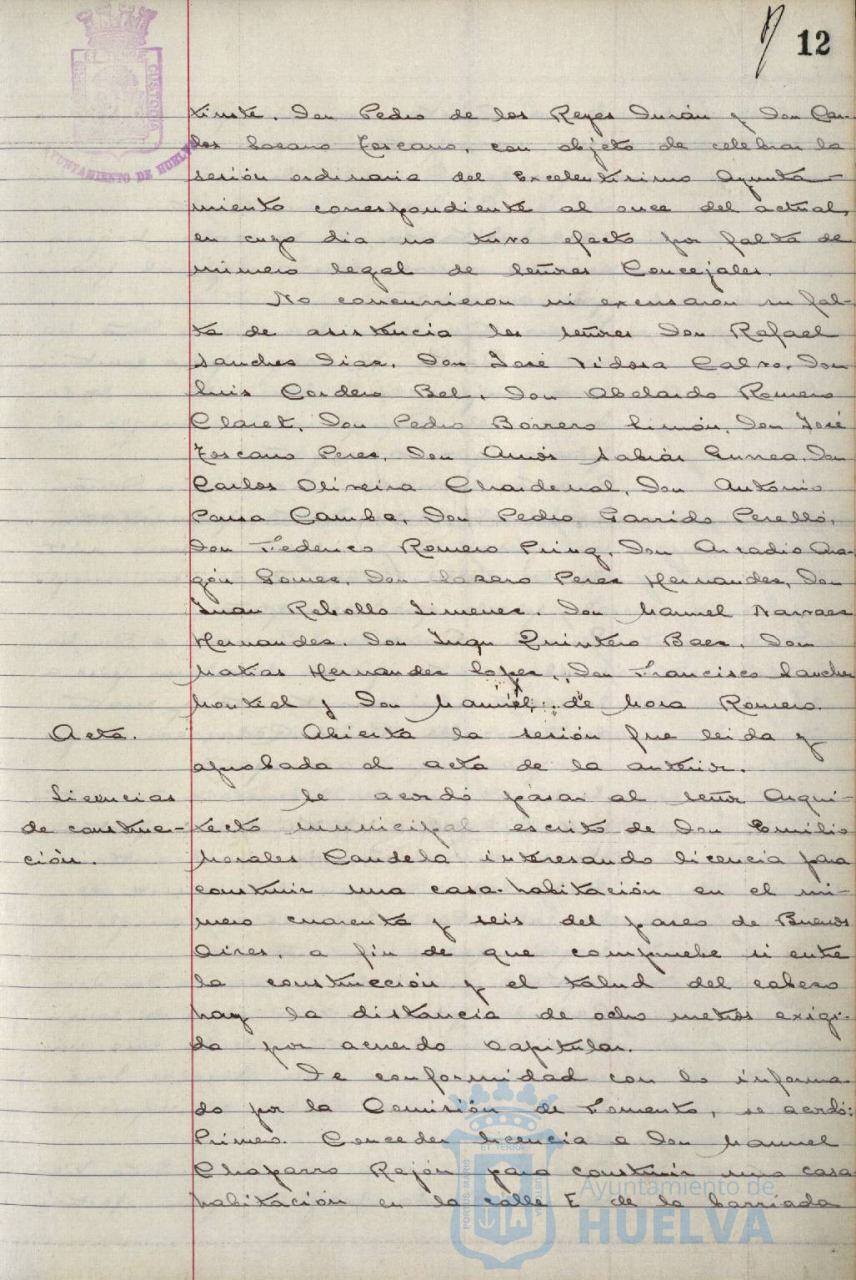 12
tinste, Don Pedro de los Reyes Durán y Don Car-
los Lozano Toscano, con objeto de celebrar la
sesión ordinaria del Excelentísimo Ayunta-
miento correspondiente al once del actual,
en cuyo dia no tuvo efecto por falta de
número legal de señores Concejales.
No concurrieron ni excusaron su fal-
ta de asistencia los señores Don Rafael
Sanchez Diaz, Don José Vidosa Calvo, Don
Luis Cordero Bel, Don Abelardo Romero
Claret, Don Pedro Borrero Limón, Don José
Toscano Perez, Don Amós Sabrás Gurrea, Don
Carlos Oliveira Chardenal, Don Antonio
Pousa Camba, Don Pedro Garrido Perelló,
Don Federico Romero Don Arcadio Ara-
gón Gomez, Don Lazaro Perez Hernandez, Don
Juan Rebollo Jimenez, Don Manuel Narvaez
Hernandez, Don Juan Quintero Baez, Don
Matias Hernandez Lopez, Don Francisco Sanchez
Montiel y Don Manuel de Mora Romero.
Acta.
Abierta la sesión fue leida y
aprobada el acta de la anterior.
Licencias
de construc-
ción.
Se acordó pasar al señor Arqui-
tecto municipal escrito de Don Emilio
Morales Candela interesando licencia para
construir una casa-habitación en el nú-
mero cuarenta y seis del paseo de Buenos
Aires, a fin de que compruebe si entre
la construcción y el talud del cabezo
hay la distancia de ocho metros exigi-
da por acuerdo capitular.
De conformidad con lo informa-
do por la Comisión de Fomento, se acordó:
Primero. Conceder licencia a Don Manuel
Chaparro Rajón para construir una casa
habitación en la calle E de la barriada
AYUNTAMIENTO DE HUELVA
Ayuntamiento de
HUELVA